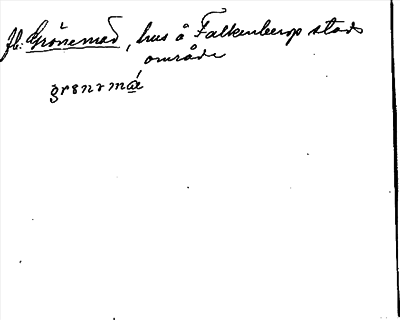 fb: Grönemad, hus å Falkenbergs stads
område
grönrmǽ